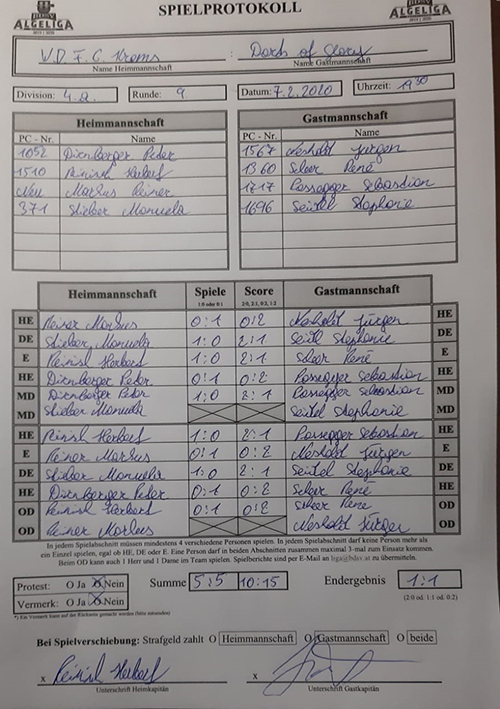 SPIELPROTOKOLL
ALGELIGA ALGELIGA
W.D.F.C. Krems : Darts of Glory
Name Heimmannschaft Name Gastmannschaft
Division: 4.a. Runde: 9 Datum: 7.2.2020 Uhrzeit: 19 30
Heimmannschaft Gastmannschaft
PC - Nr. Name PC - Nr. Name
1052 Dirnberger Peter 1567 Neshold Jürgen
1510 Reinisl Herbert 1360 Scherr René
Neu Markus Reiner 1717 Possegger Sebastian
371 Stieber Manuela 1696 Seitel Stephanie
Heimmannschaft Spiele Score Gastmannschaft
1:0 oder 0:1 2:0, 2:1, 0:2, 1:2
HE Reiner Markus 0:1 0:2 Neshold Jürgen HE
DE Stieber Manuela 1:0 2:1 Seitl Stephanie DE
E Reinisl Herbert 1:0 2:1 Scherr René E
HE Dirnberger Peter 0:1 0:2 Possegger Sebastian HE
MD Dirnberger Peter 1:0 2:1 Possegger Sebastian MD
MD Stieber Manuela Seitel Stephanie MD
HE Reinisl Herbert 1:0 2:1 Possegger Sebastian HE
E Reiner Markus 0:1 0:2 Neshold Jürgen E
DE Stieber Manuela 1:0 2:1 Seitel Stephanie DE
HE Dirnberger Peter 0:1 0:2 Scherr René HE
OD Reinisl Herbert 0:1 0:2 Scherr René OD
OD Reiner Markus Neshold Jürgen OD
In jedem Spielabschnitt müssen mindestens 4 verschiedene Personen spielen. In jedem Spielabschnitt darf keine Person mehr als
ein Einzel spielen, egal ob HE, DE oder E. Eine Person darf in beiden Abschnitten zusammen maximal 3-mal zum Einsatz kommen.
Beim OD kann auch 1 Herr und 1 Dame im Team spielen. Spielberichte sind per E-Mail an liga@bdsv.at zu übermitteln.
Protest: O Ja O Nein Summe 5:5 10:15 Endergebnis 1:1
Vermerk: O Ja O Nein (2:0 od. 1:1 od. 0:2)
Bei Spielverschiebung: Strafgeld zahlt O Heimmannschaft O Gastmannschaft O beide
x Reinisl Herbert x
Unterschrift Heimkapitän Unterschrift Gastkapitän